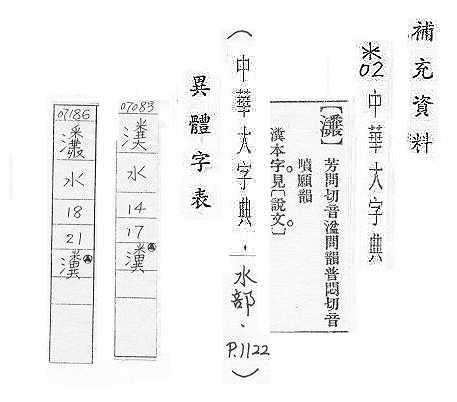 補充資料
※02 中華大字典
芳問切音湓問韻普悶切音
噴願韻
本字。見〔說文〕。
(中華大字典．水部．P.1122)
異體字表
07083
水
14
17
瀵
07186
水
18
21
瀵